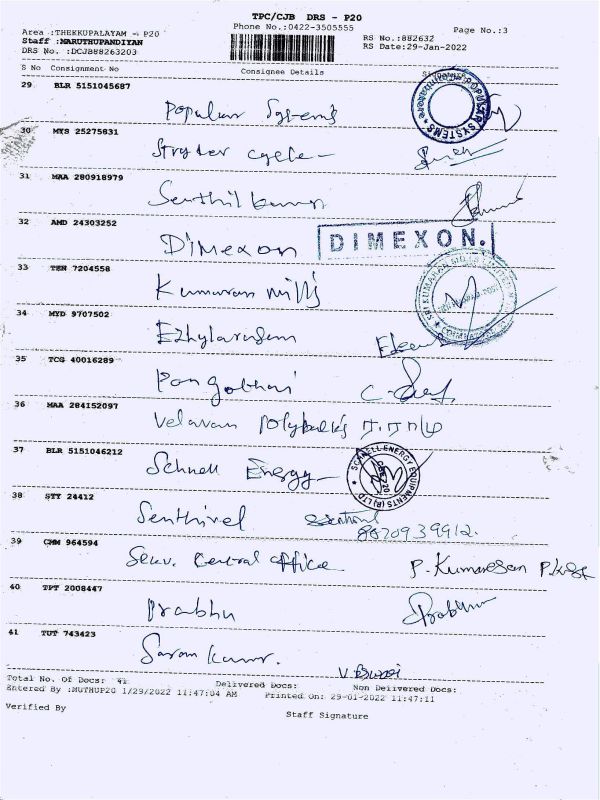 TPC/CJB DRS - P20
Area :THEKKUPALAYAM - P20
Phone No.:0422-3505555
Page No.:3
Staff :MARUTHUPANDIYAN
RS No.:882632
DRS No. :DCJB88263203
RS Date:29-Jan-2022
S No Consignment No Consignee Details
29 BLR 5151045687
Popular Systems
30 MYS 25275831
Stryder cycle
31 MAA 280918979
Senthil kumar
32 AMD 24303252
Dimexon
DIMEXON.
33 TEN 7204558
Kumaran Mills
34 MYD 9707502
Ezhylarasan
35 TCG 40016289
Pongothai
36 MAA 284152097
Velavan
37 BLR 5151046212
Schnell Energy
SCHNELL ENERGY EQUIPMENTS (P) LTD
38 STY 24412
Senthivel
8870939912.
39 CHM 964594
Central office P. Kumaresan
40 TPT 2008447
Prabhu
41 TUT 743423
Saran Kumar.
Total No. Of Docs: 41 Delivered Docs: Non Delivered Docs:
Entered By :MUTHUP20 1/29/2022 11:47:04 AM Printed On: 29-01-2022 11:47:11
Verified By
Staff Signature